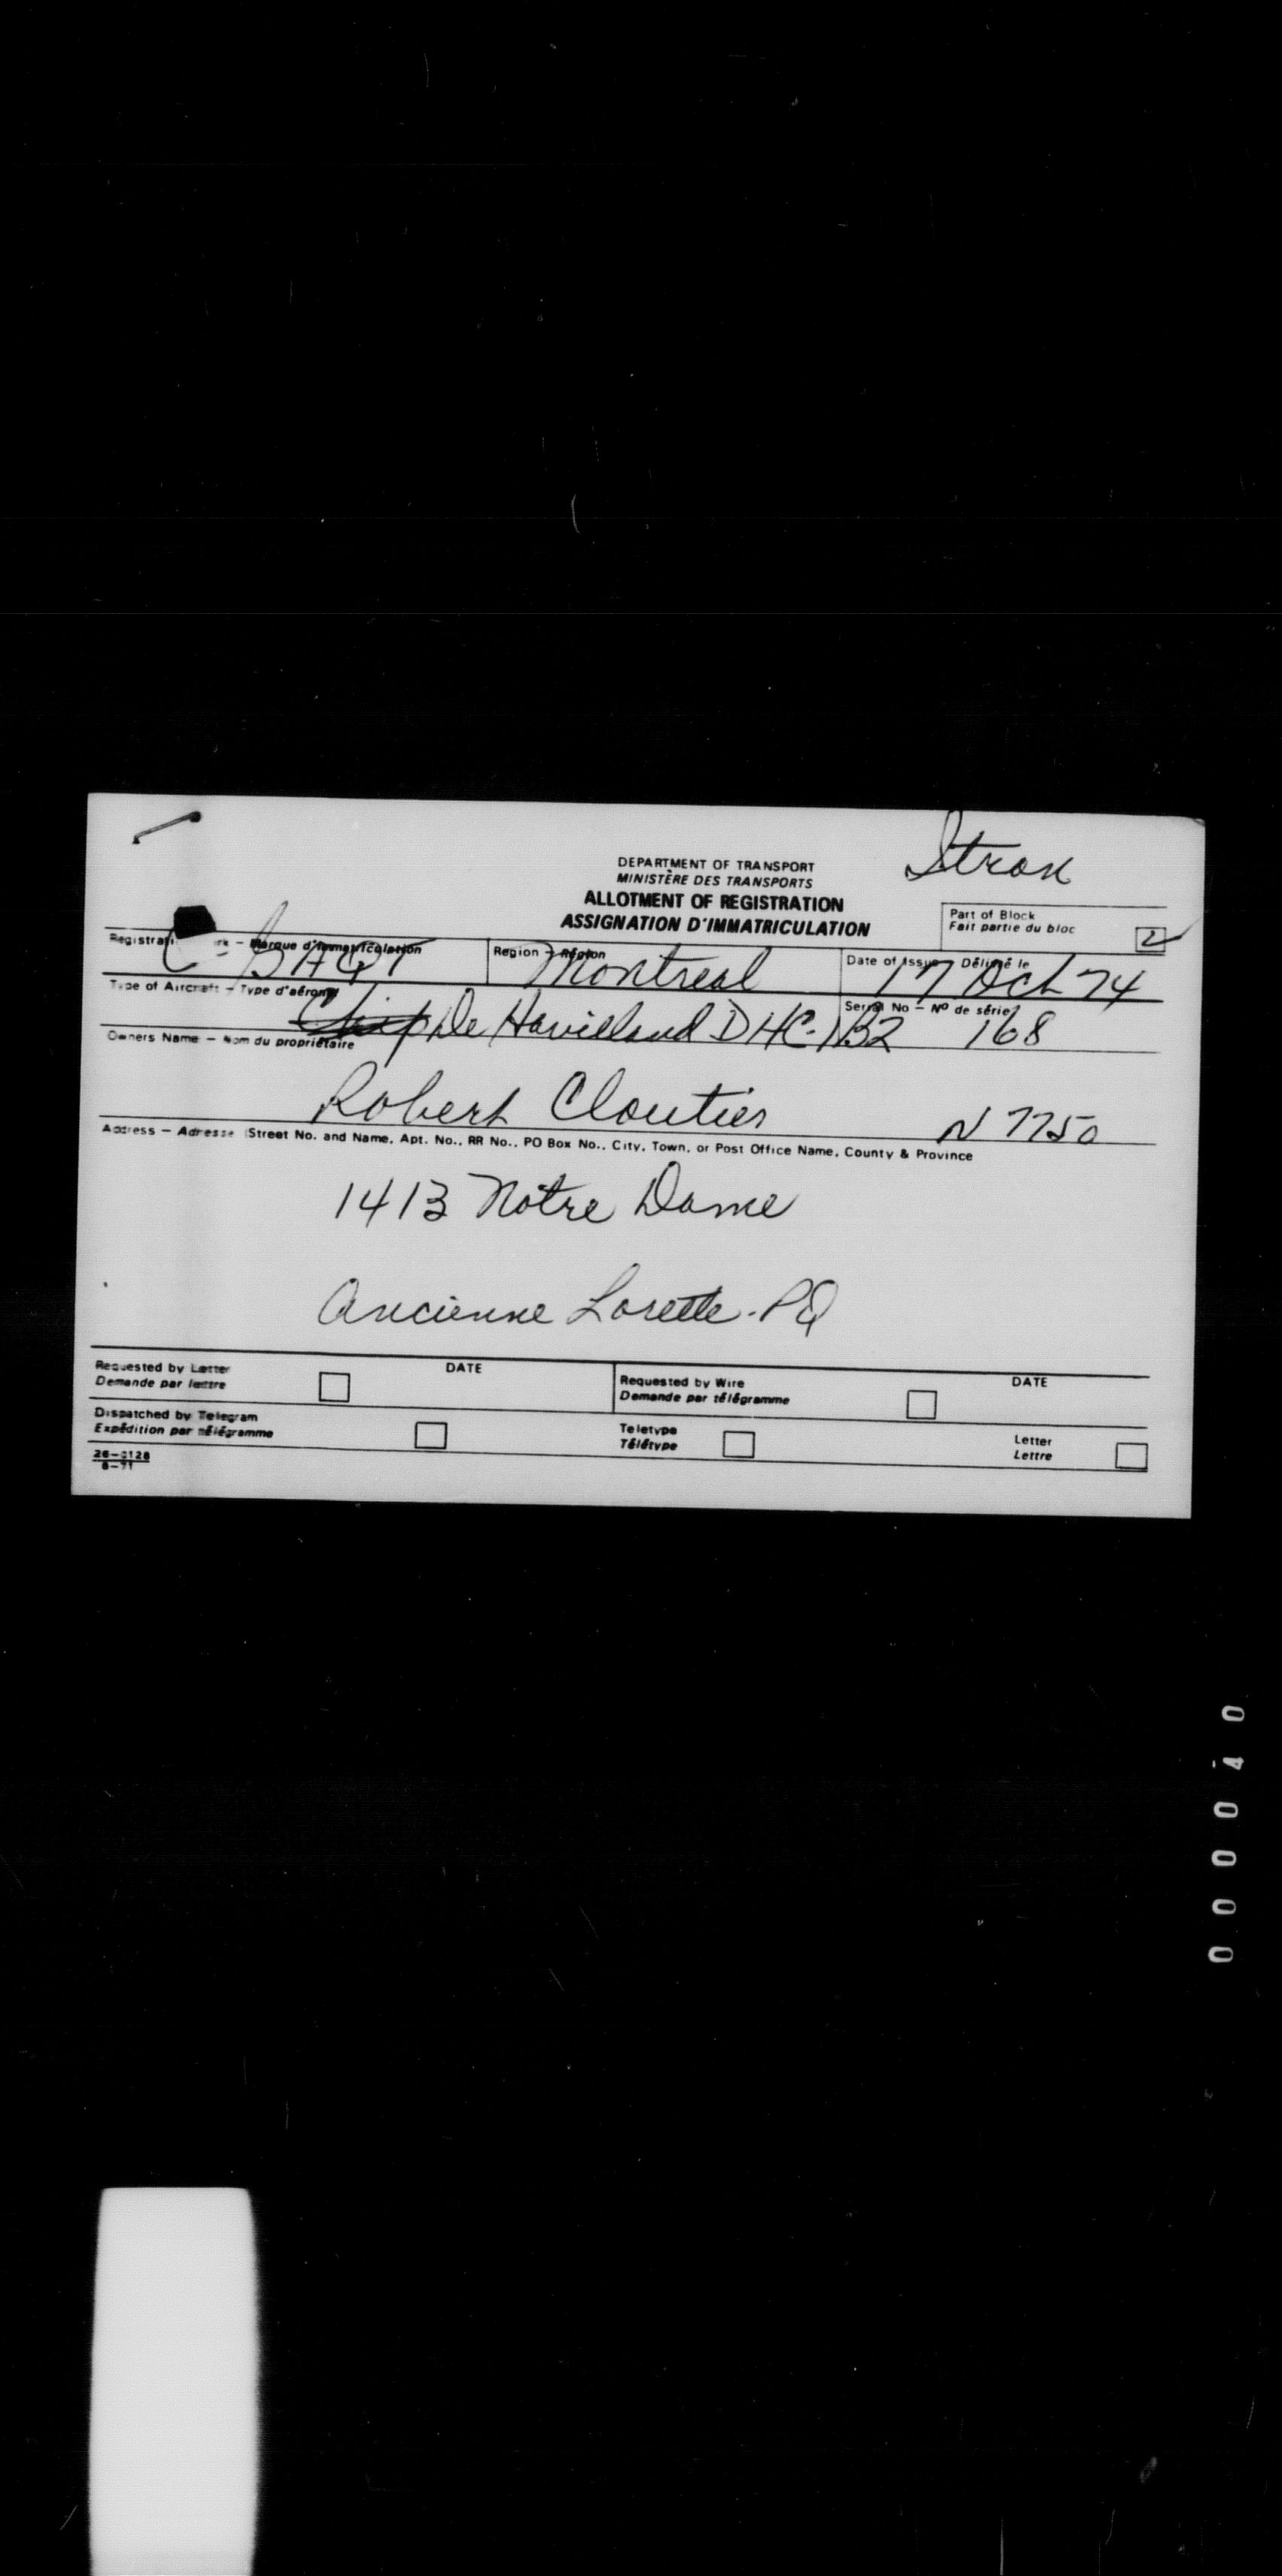 DEPARTMENT OF TRANSPORT
MINISTÈRE DES TRANSPORTS
ALLOTMENT OF REGISTRATION
ASSIGNATION D'IMMATRICULATION
Part of Block
Fait partie du bloc
2
Marque d'immatriculation
C-
Region – Région
Montreal
Date of Issue – Délivré le
17 Oct 74
Type of Aircraft – Type d'aéronef
De Havilland DHC-1B2
Serial No – Nº de série
168
Owners Name – Nom du propriétaire
Robert Cloutier
N 7750
Address – Adresse (Street No. and Name, Apt. No., RR No., PO Box No., City, Town, or Post Office Name, County & Province
1413 Notre Dame
Ancienne Lorette. PQ
Requested by Letter
Demande par lettre
DATE
Requested by Wire
Demande par télégramme
DATE
Dispatched by Telegram
Expédition par télégramme
Teletype
Télétype
Letter
Lettre
26-0128
000040